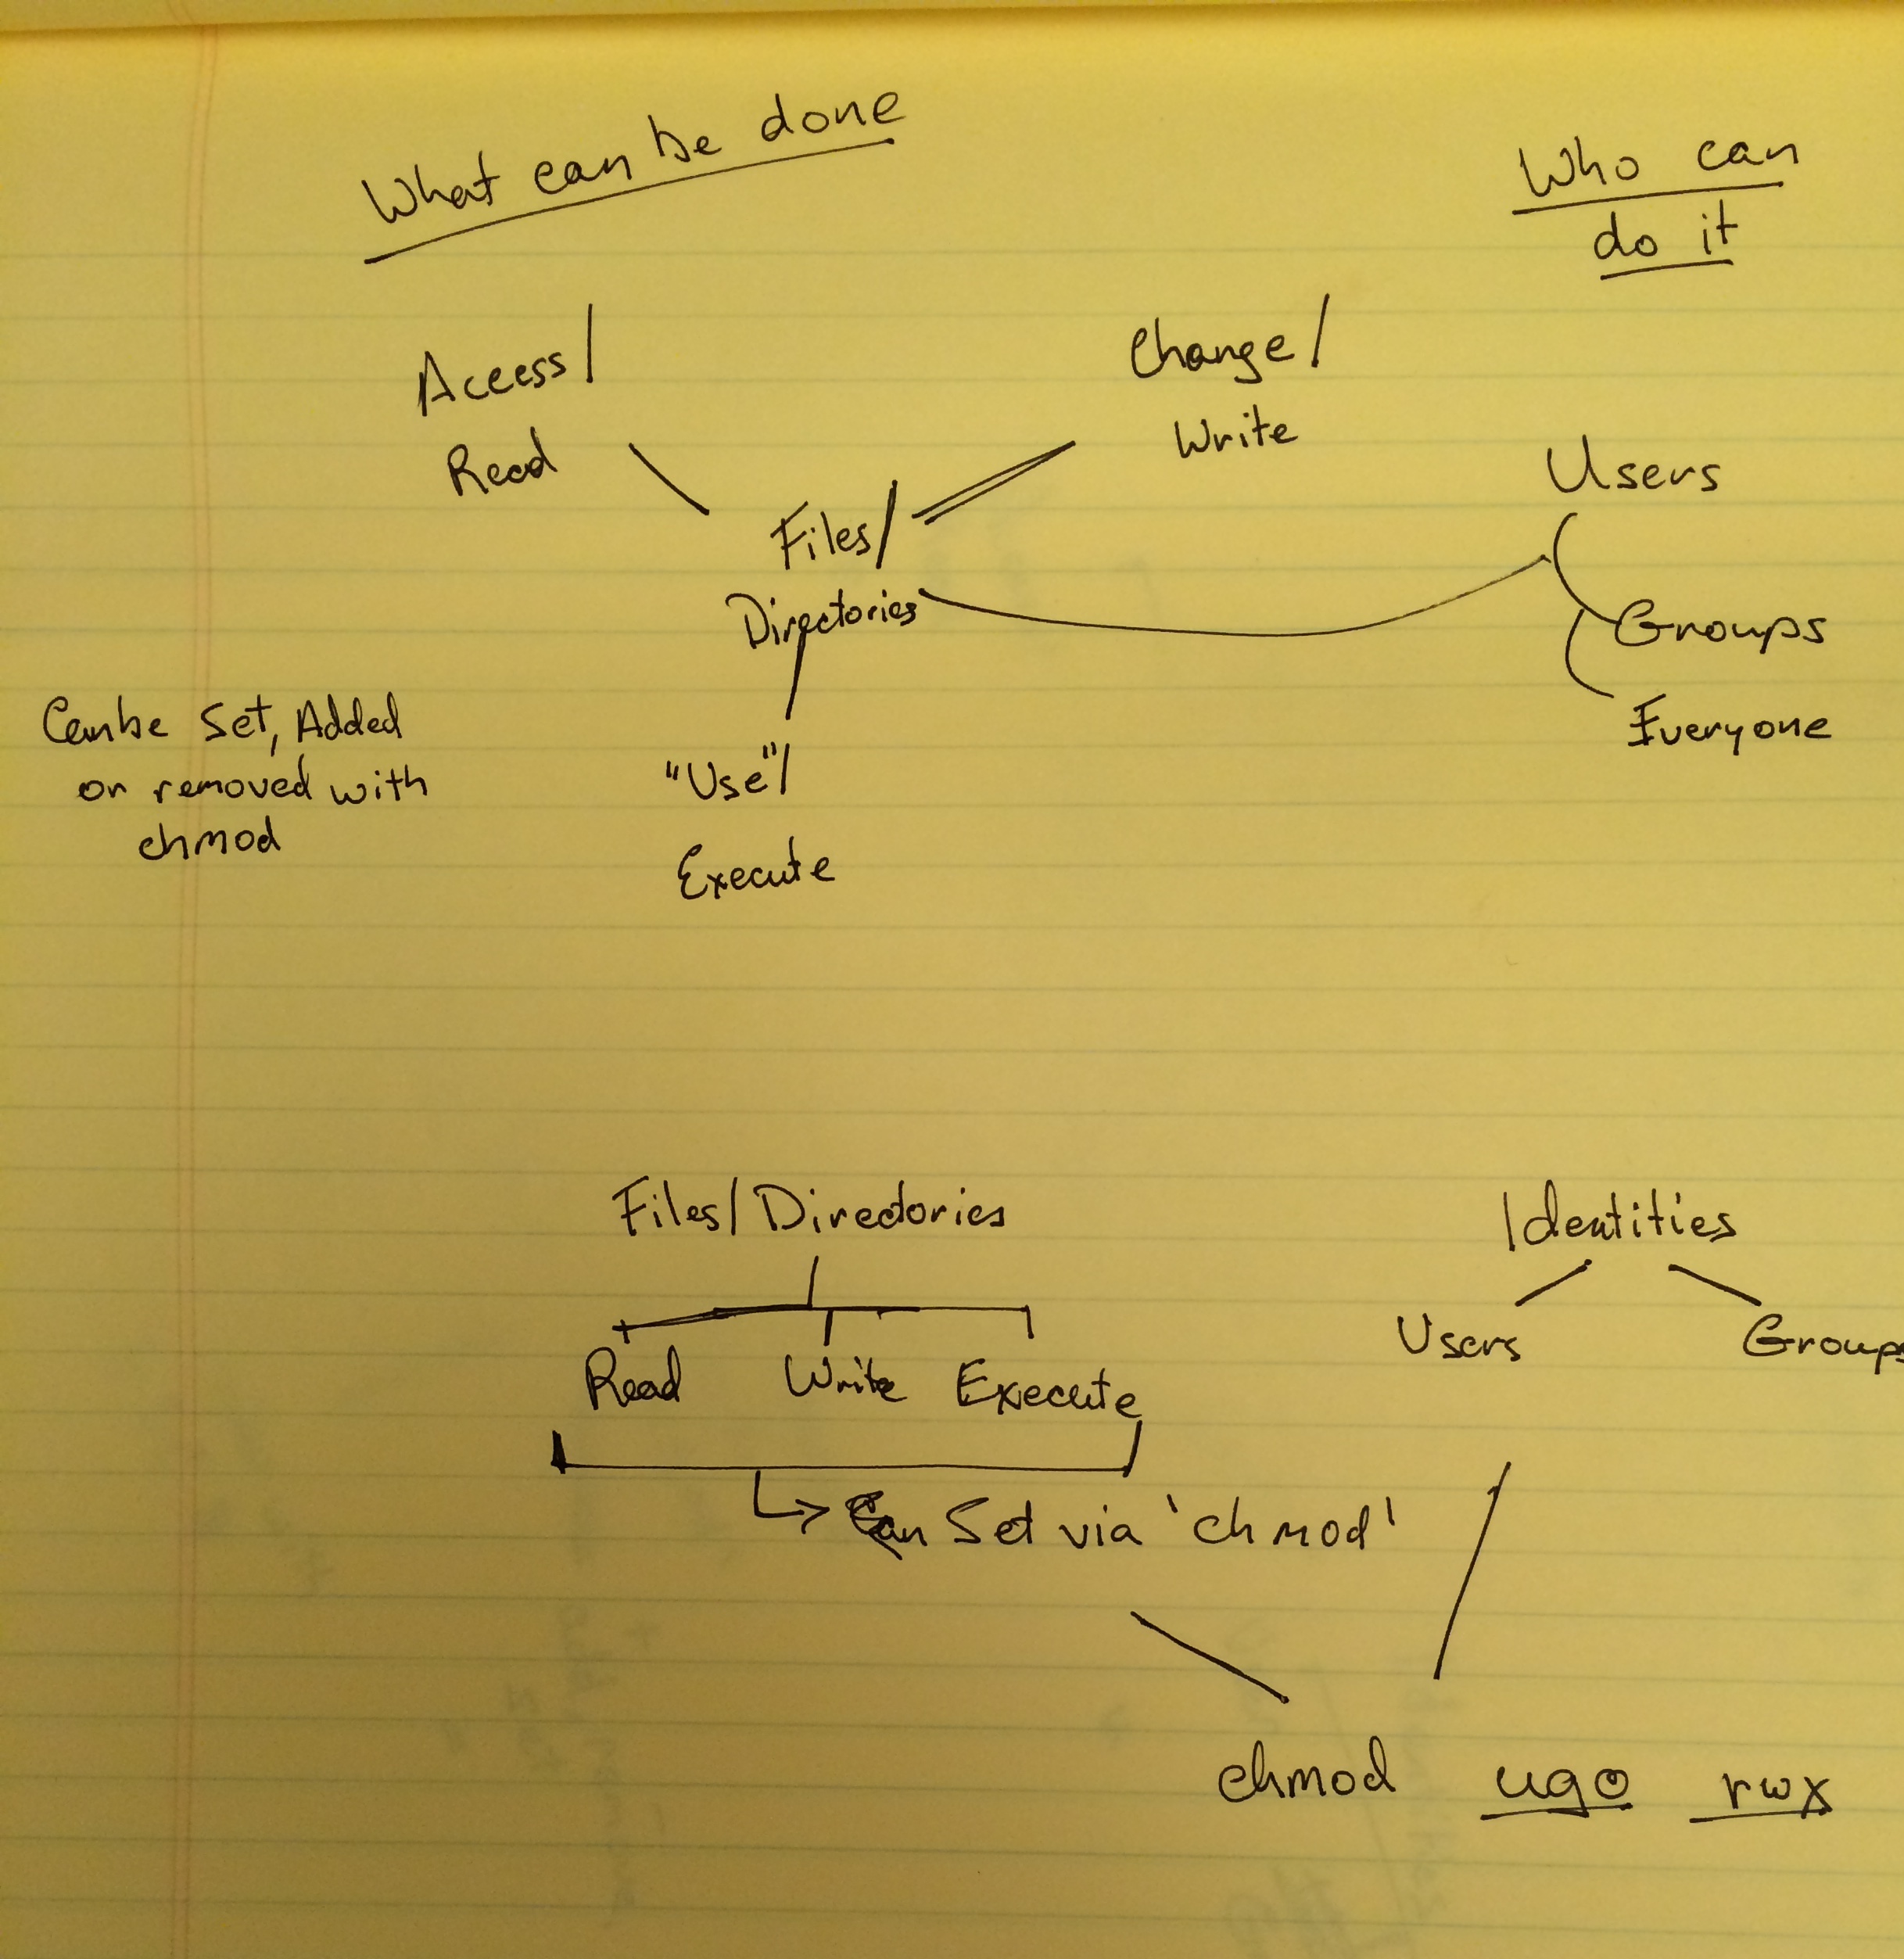 What can be done
Who can
do it
Access/
Read
Change/
Write
Files/
Directories
Users
Groups
Everyone
Can be Set, Added
or removed with
chmod
"Use"/
Execute
Files/Directories
Identities
Users
Groups
Read Write Execute
Can Set via 'chmod'
chmod ugo rwx